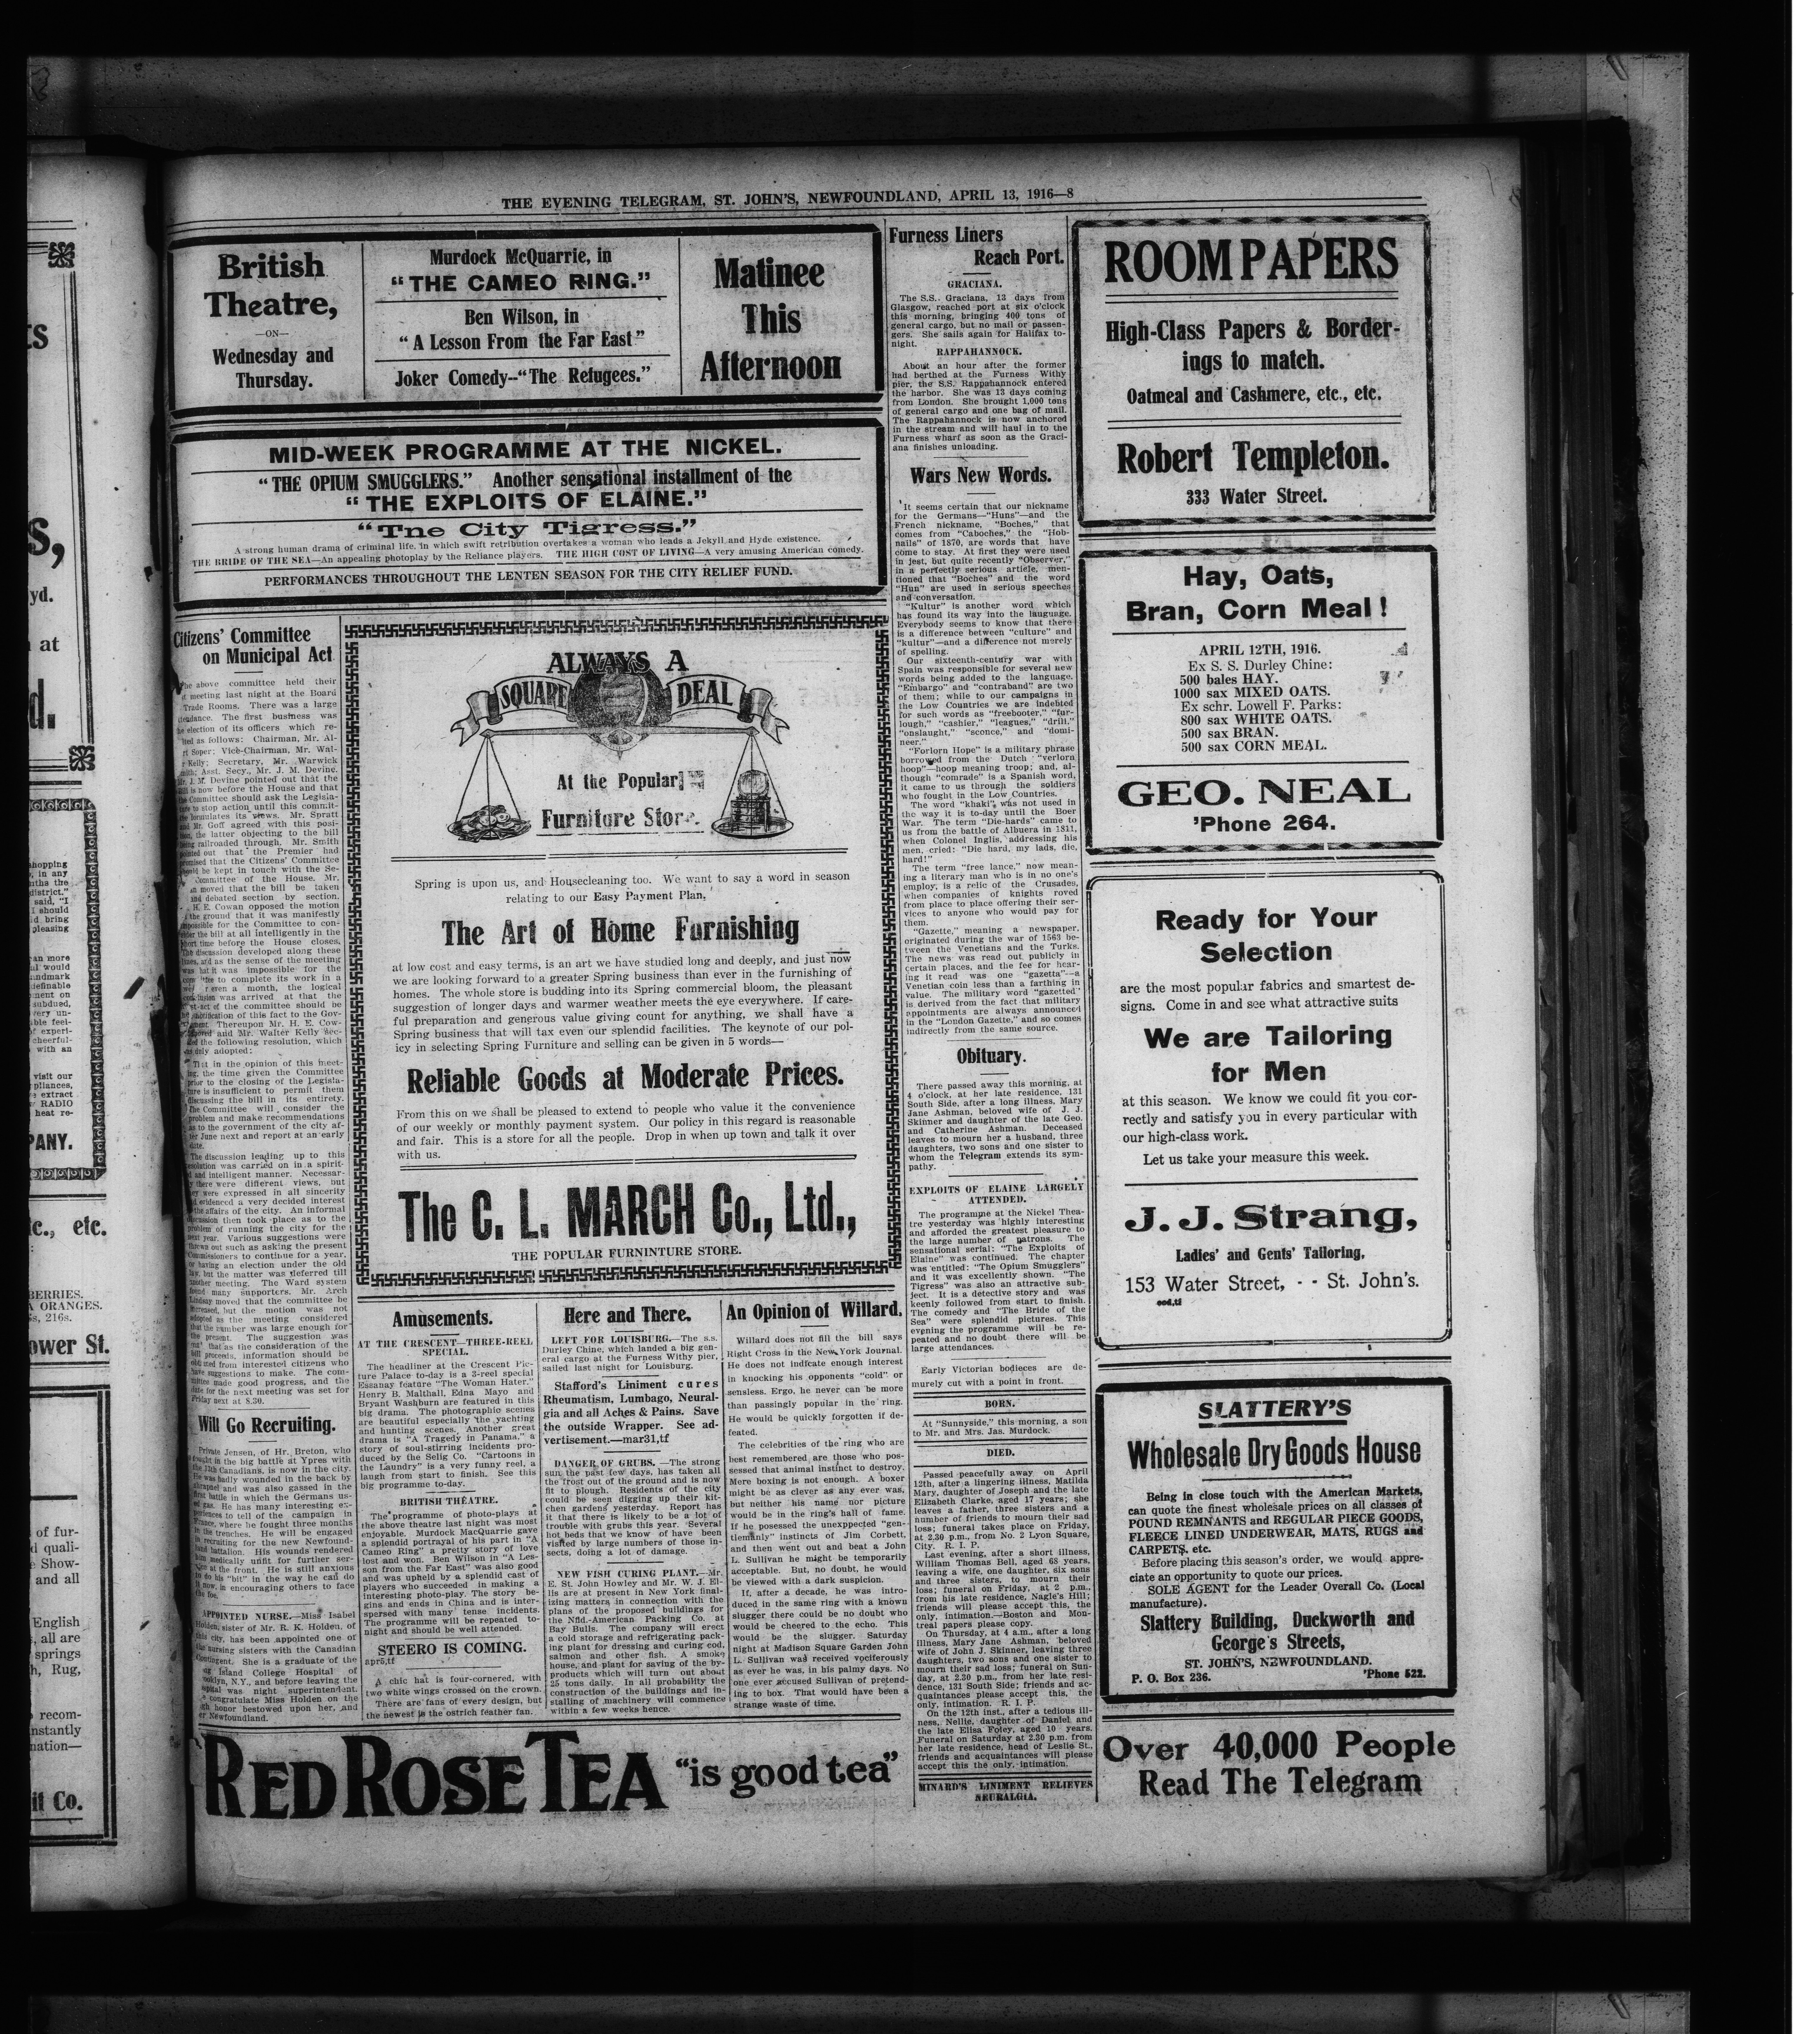 THE EVENING TELEGRAM, ST. JOHN'S, NEWFOUNDLAND, APRIL 13, 1916—8
British
Theatre,
—ON—
Wednesday and
Thursday.
Murdock McQuarrie, in
"THE CAMEO RING."
Ben Wilson, in
"A Lesson From the Far East"
Joker Comedy--"The Refugees."
Matinee
This
Afternoon
MID-WEEK PROGRAMME AT THE NICKEL.
"THE OPIUM SMUGGLERS." Another sensational installment of the
"THE EXPLOITS OF ELAINE."
"Tne City Tigress."
A strong human drama of criminal life, in which swift retribution overtakes a woman who leads a Jekyll and Hyde existence.
THE BRIDE OF THE SEA—An appealing photoplay by the Reliance players. THE HIGH COST OF LIVING—A very amusing American comedy.
PERFORMANCES THROUGHOUT THE LENTEN SEASON FOR THE CITY RELIEF FUND.
Citizens' Committee
on Municipal Act
above committee held their
meeting last night at the Board
Trade Rooms. There was a large
The first business was
election of its officers which re-
as follows: Chairman, Mr. Al-
Soper; Vice-Chairman, Mr. Wal-
Kelly; Secretary, Mr. Warwick
Asst. Secy., Mr. J. M. Devine.
J. M. Devine pointed out that the
is now before the House and that
Committee should ask the Legisla-
to stop action until this commit-
formulates its views. Mr. Spratt
Mr. Goff agreed with this posi-
the latter objecting to the bill
being railroaded through. Mr. Smith
pointed out that the Premier had
promised that the Citizens' Committee
be kept in touch with the Se-
Committee of the House. Mr.
moved that the bill be taken
and debated section by section.
H. E. Cowan opposed the motion
the ground that it was manifestly
impossible for the Committee to con-
the bill at all intelligently in the
short time before the House closes.
The discussion developed along these
lines, and as the sense of the meeting
was that it was impossible for the
to complete its work in a
or even a month, the logical
was arrived at that the
of the committee should be
notification of this fact to the Gov-
Thereupon Mr. H. E. Cow-
moved and Mr. Walter Kelly sec-
the following resolution, which
was duly adopted:
That in the opinion of this meet-
ing, the time given the Committee
prior to the closing of the Legisla-
ture is insufficient to permit them
discussing the bill in its entirety.
The Committee will consider the
problem and make recommendations
as to the government of the city af-
ter June next and report at an early
date.
The discussion leading up to this
resolution was carried on in a spirit-
and intelligent manner. Necessar-
there were different views, but
they were expressed in all sincerity
evidenced a very decided interest
the affairs of the city. An informal
discussion then took place as to the
problem of running the city for the
next year. Various suggestions were
thrown out such as asking the present
Commissioners to continue for a year,
or having an election under the old
law, but the matter was deferred till
another meeting. The Ward system
found many supporters. Mr. Arch
Lindsay moved that the committee be
increased, but the motion was not
adopted as the meeting considered
that the number was large enough for
the present. The suggestion was
that as the consideration of the
bill proceeds, information should be
from interested citizens who
have suggestions to make. The com-
mittee made good progress, and the
date for the next meeting was set for
Friday next at 8.30.
Will Go Recruiting.
Private Jensen, of Hr. Breton, who
fought in the big battle at Ypres with
the 13th Canadians, is now in the city.
He was badly wounded in the back by
shrapnel and was also gassed in the
first battle in which the Germans us-
ed gas. He has many interesting ex-
periences to tell of the campaign in
France, where he fought three months
in the trenches. He will be engaged
in recruiting for the new Newfound-
land battalion. His wounds rendered
him medically unfit for further ser-
vice at the front. He is still anxious
to do his "bit" in the way he can do
it now, in encouraging others to face
the foe.
APPOINTED NURSE.—Miss Isabel
Holden, sister of Mr. R. K. Holden, of
this city, has been appointed one of
the nursing sisters with the Canadian
Contingent. She is a graduate of the
Island College Hospital of
Brooklyn, N.Y., and before leaving the
hospital was night superintendent.
congratulate Miss Holden on the
high honor bestowed upon her, and
Newfoundland.
ALWAYS A
SQUARE DEAL
At the Popular
Furniture Store.
Spring is upon us, and Housecleaning too. We want to say a word in season
relating to our Easy Payment Plan,
The Art of Home Furnishing
at low cost and easy terms, is an art we have studied long and deeply, and just now
we are looking forward to a greater Spring business than ever in the furnishing of
homes. The whole store is budding into its Spring commercial bloom, the pleasant
suggestion of longer days and warmer weather meets the eye everywhere. If care-
ful preparation and generous value giving count for anything, we shall have a
Spring business that will tax even our splendid facilities. The keynote of our pol-
icy in selecting Spring Furniture and selling can be given in 5 words—
Reliable Goods at Moderate Prices.
From this on we shall be pleased to extend to people who value it the convenience
of our weekly or monthly payment system. Our policy in this regard is reasonable
and fair. This is a store for all the people. Drop in when up town and talk it over
with us.
The C. L. MARCH Co., Ltd.,
THE POPULAR FURNINTURE STORE.
Amusements.
AT THE CRESCENT—THREE-REEL
SPECIAL.
The headliner at the Crescent Pic-
ture Palace to-day is a 3-reel special
Essanay feature "The Woman Hater."
Henry B. Malthall, Edna Mayo and
Bryant Washburn are featured in this
big drama. The photographic scenes
are beautiful especially the yachting
and hunting scenes. Another great
drama is "A Tragedy in Panama," a
story of soul-stirring incidents pro-
duced by the Selig Co. "Cartoons in
the Laundry" is a very funny reel, a
laugh from start to finish. See this
big programme to-day.
BRITISH THEATRE.
The programme of photo-plays at
the above theatre last night was most
enjoyable. Murdock MacQuarrie gave
a splendid portrayal of his part in "A
Cameo Ring" a pretty story of love
lost and won. Ben Wilson in "A Les-
son from the Far East" was also good
and was upheld by a splendid cast of
players who succeeded in making a
interesting photo-play. The story be-
gins and ends in China and is inter-
spersed with many tense incidents.
The programme will be repeated to-
night and should be well attended.
STEERO IS COMING.
apr5,tf
A chic hat is four-cornered, with
two white wings crossed on the crown.
There are fans of every design, but
the newest is the ostrich feather fan.
Here and There.
LEFT FOR LOUISBURG.—The s.s.
Durley Chine, which landed a big gen-
eral cargo at the Furness Withy pier,
sailed last night for Louisburg.
Stafford's Liniment cures
Rheumatism, Lumbago, Neural-
gia and all Aches & Pains. Save
the outside Wrapper. See ad-
vertisement.—mar31,tf
DANGER OF GRUBS. —The strong
sun the past few days, has taken all
the frost out of the ground and is now
fit to plough. Residents of the city
could be seen digging up their kit-
chen gardens yesterday. Report has
it that there is likely to be a lot of
trouble with grubs this year. Several
hot beds that we know of have been
visited by large numbers of those in-
sects, doing a lot of damage.
NEW FISH CURING PLANT.—Mr.
E. St. John Howley and Mr. W. J. El-
lis are at present in New York final-
izing matters in connection with the
plans of the proposed buildings for
the Nfld.-American Packing Co. at
Bay Bulls. The company will erect
a cold storage and refrigerating pack-
ing plant for dressing and curing cod,
salmon and other fish. A smoke
house, and plant for saving of the by-
products which will turn out about
25 tons daily. In all probability the
construction of the buildings and in-
stalling of machinery will commence
within a few weeks hence.
An Opinion of Willard.
Willard does not fill the bill says
Right Cross in the New York Journal.
He does not indicate enough interest
in knocking his opponents "cold" or
sensless. Ergo, he never can be more
than passingly popular in the ring.
He would be quickly forgotten if de-
feated.
The celebrities of the ring who are
best remembered are those who pos-
sessed that animal instinct to destroy.
Mere boxing is not enough. A boxer
might be as clever as any ever was,
but neither his name nor picture
would be in the ring's hall of fame.
If he posessed the unexppected "gen-
tlemanly" instincts of Jim Corbett,
and then went out and beat a John
L. Sullivan he might be temporarily
acceptable. But, no doubt, he would
be viewed with a dark suspicion.
If, after a decade, he was intro-
duced in the same ring with a known
slugger there could be no doubt who
would be cheered to the echo. This
would be the slugger. Saturday
night at Madison Square Garden John
L. Sullivan was received vociferously
as ever he was, in his palmy days. No
one ever accused Sullivan of pretend-
ing to box. That would have been a
strange waste of time.
RED ROSE TEA "is good tea"
Furness Liners
Reach Port.
GRACIANA.
The S.S. Graciana, 13 days from
Glasgow, reached port at six o'clock
this morning, bringing 400 tons of
general cargo, but no mail or passen-
gers. She sails again for Halifax to-
night.
RAPPAHANNOCK.
About an hour after the former
had berthed at the Furness Withy
pier, the S.S. Rappahannock entered
the harbor. She was 13 days coming
from London. She brought 1,000 tons
of general cargo and one bag of mail.
The Rappahannock is now anchored
in the stream and will haul in to the
Furness wharf as soon as the Graci-
ana finishes unloading.
Wars New Words.
It seems certain that our nickname
for the Germans—"Huns"—and the
French nickname, "Boches," that
comes from "Caboches," the "Hob-
nails" of 1870, are words that have
come to stay. At first they were used
in jest, but quite recently "Observer,"
in a perfectly serious article, men-
tioned that "Boches" and the word
"Hun" are used in serious speeches
and conversation.
"Kultur" is another word which
has found its way into the language.
Everybody seems to know that there
is a difference between "culture" and
"kultur"—and a difference not merely
of spelling.
Our sixteenth-century war with
Spain was responsible for several new
words being added to the language.
"Embargo" and "contraband" are two
of them; while to our campaigns in
the Low Countries we are indebted
for such words as "freebooter," "fur-
lough," "cashier," "leagues," "drill,"
"onslaught," "sconce," and "domi-
neer."
"Forlorn Hope" is a military phrase
borrowed from the Dutch "verlorn
hoop"—hoop meaning troop; and, al-
though "comrade" is a Spanish word,
it came to us through the soldiers
who fought in the Low Countries.
The word "khaki" was not used in
the way it is to-day until the Boer
War. The term "Die-hards" came to
us from the battle of Albuera in 1811,
when Colonel Inglis, addressing his
men, cried: "Die hard, my lads, die,
hard!"
The term "free lance," now mean-
ing a literary man who is in no one's
employ, is a relic of the Crusades,
when companies of knights roved
from place to place offering their ser-
vices to anyone who would pay for
them.
"Gazette," meaning a newspaper,
originated during the war of 1563 be-
tween the Venetians and the Turks.
The news was read out publicly in
certain places, and the fee for hear-
ing it read was one "gazetta"—a
Venetian coin less than a farthing in
value. The military word "gazetted"
is derived from the fact that military
appointments are always announced
in the "London Gazette," and so comes
indirectly from the same source.
Obituary.
There passed away this morning, at
4 o'clock, at her late residence, 131
South Side, after a long illness, Mary
Jane Ashman, beloved wife of J. J.
Skinner and daughter of the late Geo.
and Catherine Ashman. Deceased
leaves to mourn her a husband, three
daughters, two sons and one sister to
whom the Telegram extends its sym-
pathy.
EXPLOITS OF ELAINE LARGELY
ATTENDED.
The programme at the Nickel Thea-
tre yesterday was highly interesting
and afforded the greatest pleasure to
the large number of patrons. The
sensational serial: "The Exploits of
Elaine" was continued. The chapter
was entitled: "The Opium Smugglers"
and it was excellently shown. "The
Tigress" was also an attractive sub-
ject. It is a detective story and was
keenly followed from start to finish.
The comedy and "The Bride of the
Sea" were splendid pictures. This
evening the programme will be re-
peated and no doubt there will be
large attendances.
Early Victorian bodieces are de-
murely cut with a point in front.
BORN.
At "Sunnyside," this morning, a son
to Mr. and Mrs. Jas. Murdock.
DIED.
Passed peacefully away on April
12th, after a lingering illness, Matilda
Mary, daughter of Joseph and the late
Elizabeth Clarke, aged 17 years; she
leaves a father, three sisters and a
number of friends to mourn their sad
loss; funeral takes place on Friday,
at 2.30 p.m., from No. 2 Lyon Square,
City. R. I. P.
Last evening, after a short illness,
William Thomas Bell, aged 68 years,
leaving a wife, one daughter, six sons
and three sisters, to mourn their
loss; funeral on Friday, at 2 p.m.,
from his late residence, Nagle's Hill;
friends will please accept this, the
only, intimation.—Boston and Mon-
treal papers please copy.
On Thursday, at 4 a.m., after a long
illness, Mary Jane Ashman, beloved
wife of John J. Skinner, leaving three
daughters, two sons and one sister to
mourn their sad loss; funeral on Sun-
day, at 2.30 p.m., from her late resi-
dence, 131 South Side; friends and ac-
quaintances please accept this, the
only, intimation. R. I. P.
On the 12th inst., after a tedious ill-
ness, Nellie, daughter of Daniel and
the late Elisa Foley, aged 10 years.
Funeral on Saturday at 2.30 p.m. from
her late residence, head of Leslie St.,
friends and acquaintances will please
accept this the only, intimation.
MINARD'S LINIMENT RELIEVES
NEURALGIA.
ROOM PAPERS
High-Class Papers & Border-
ings to match.
Oatmeal and Cashmere, etc., etc.
Robert Templeton.
333 Water Street.
Hay, Oats,
Bran, Corn Meal!
APRIL 12TH, 1916.
Ex S. S. Durley Chine:
500 bales HAY.
1000 sax MIXED OATS.
Ex schr. Lowell F. Parks:
800 sax WHITE OATS.
500 sax BRAN.
500 sax CORN MEAL.
GEO. NEAL
'Phone 264.
Ready for Your
Selection
are the most popular fabrics and smartest de-
signs. Come in and see what attractive suits
We are Tailoring
for Men
at this season. We know we could fit you cor-
rectly and satisfy you in every particular with
our high-class work.
Let us take your measure this week.
J. J. Strang,
Ladies' and Gents' Tailoring,
153 Water Street, - - St. John's.
eod,tf
SLATTERY'S
Wholesale Dry Goods House
Being in close touch with the American Markets,
can quote the finest wholesale prices on all classes of
POUND REMNANTS and REGULAR PIECE GOODS,
FLEECE LINED UNDERWEAR, MATS, RUGS and
CARPETS, etc.
Before placing this season's order, we would appre-
ciate an opportunity to quote our prices.
SOLE AGENT for the Leader Overall Co. (Local
manufacture).
Slattery Building, Duckworth and
George's Streets,
ST. JOHN'S, NEWFOUNDLAND.
P. O. Box 236. 'Phone 522.
Over 40,000 People
Read The Telegram